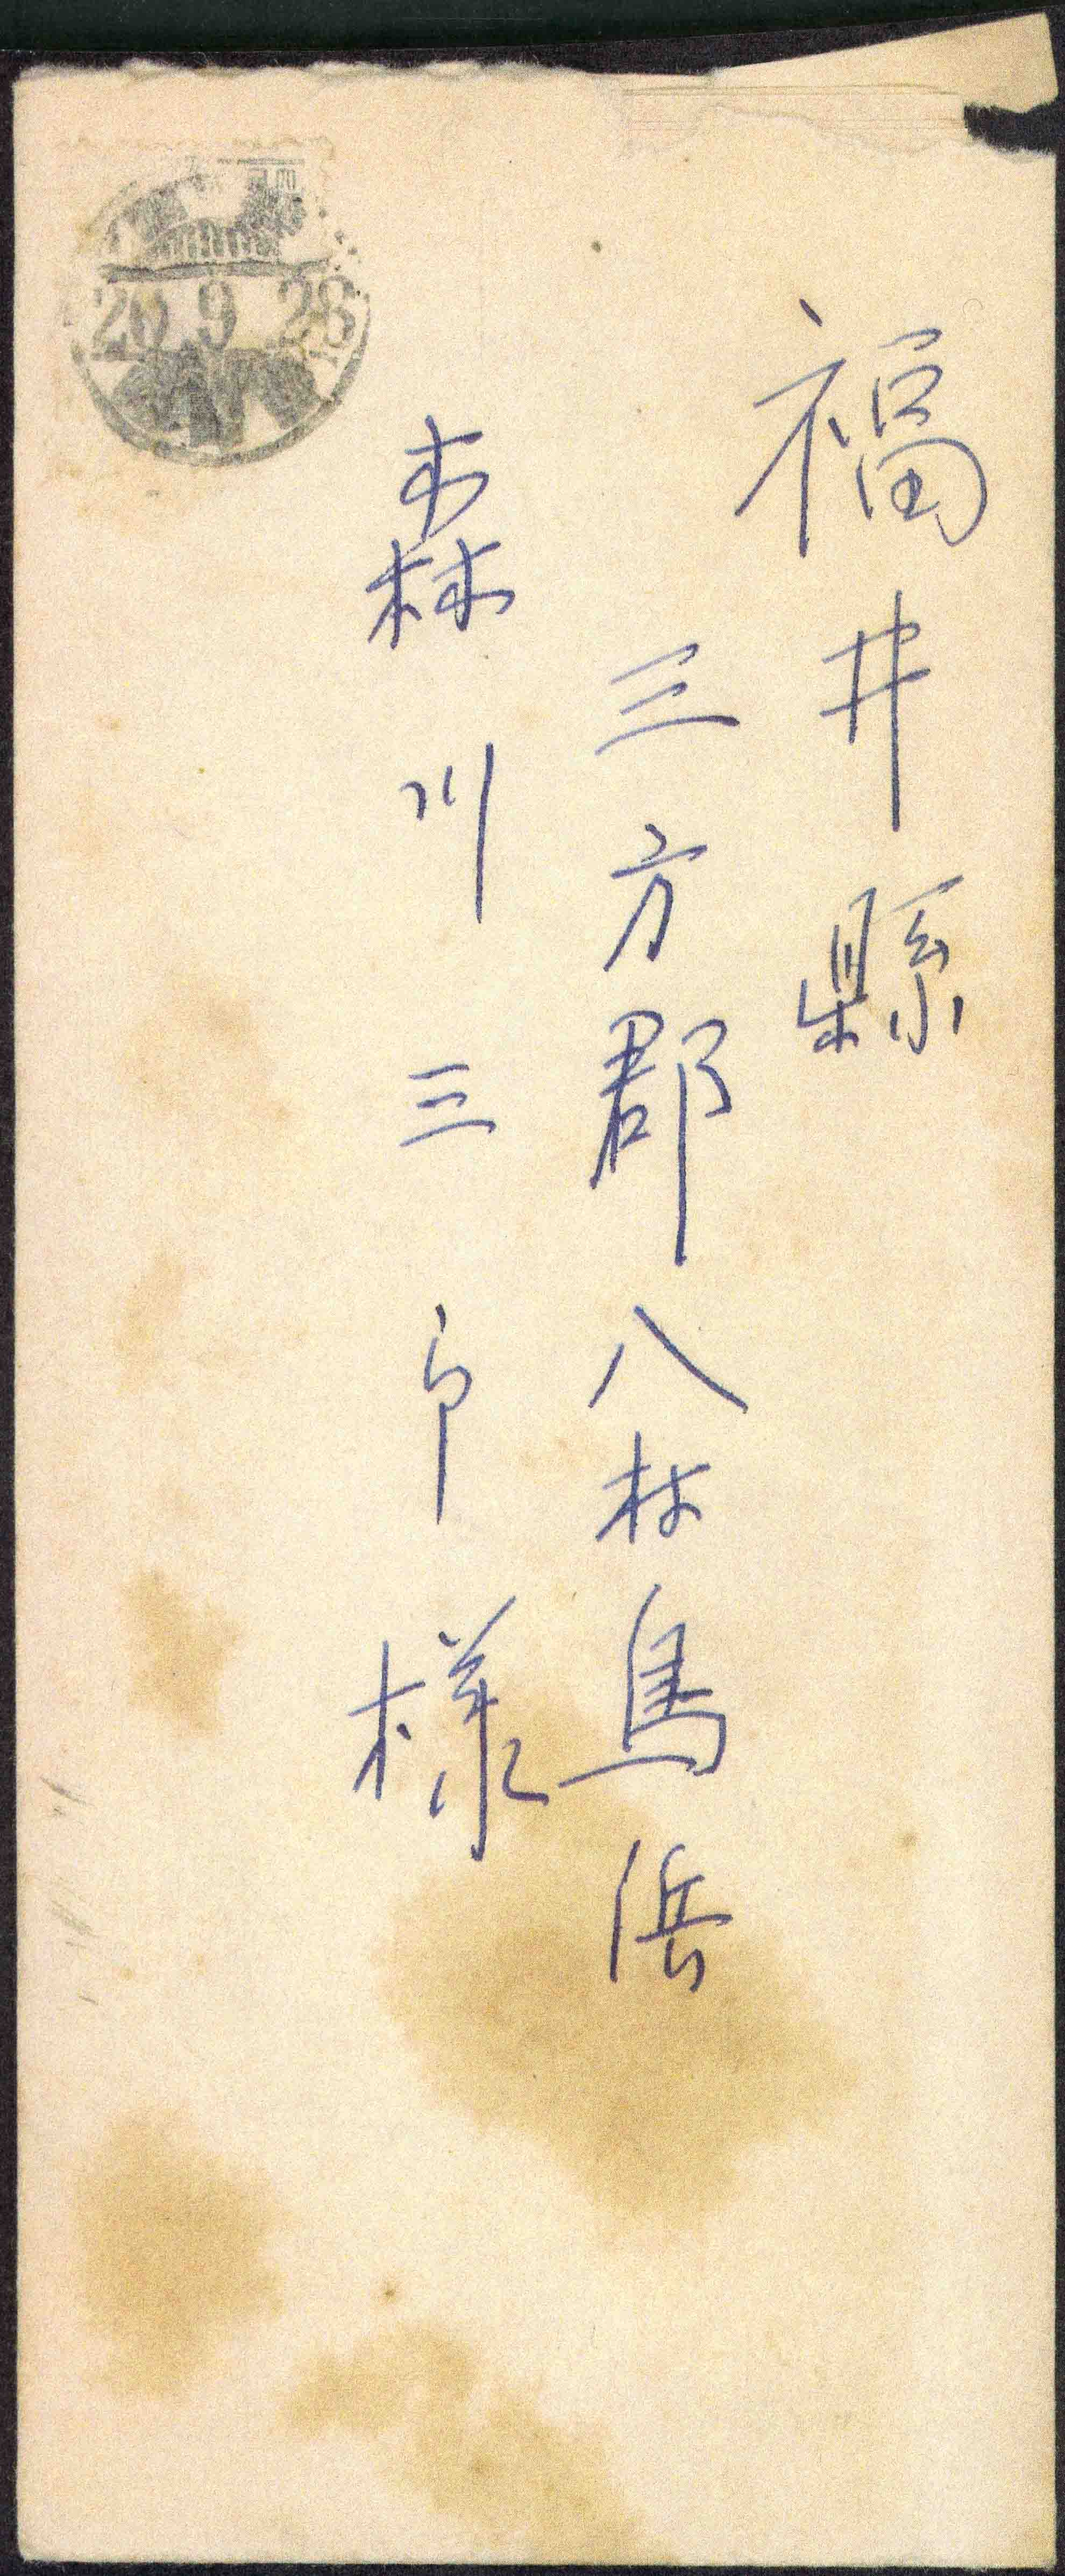 福井縣
三方郡八村鳥浜
森川三郎様
20.9.28